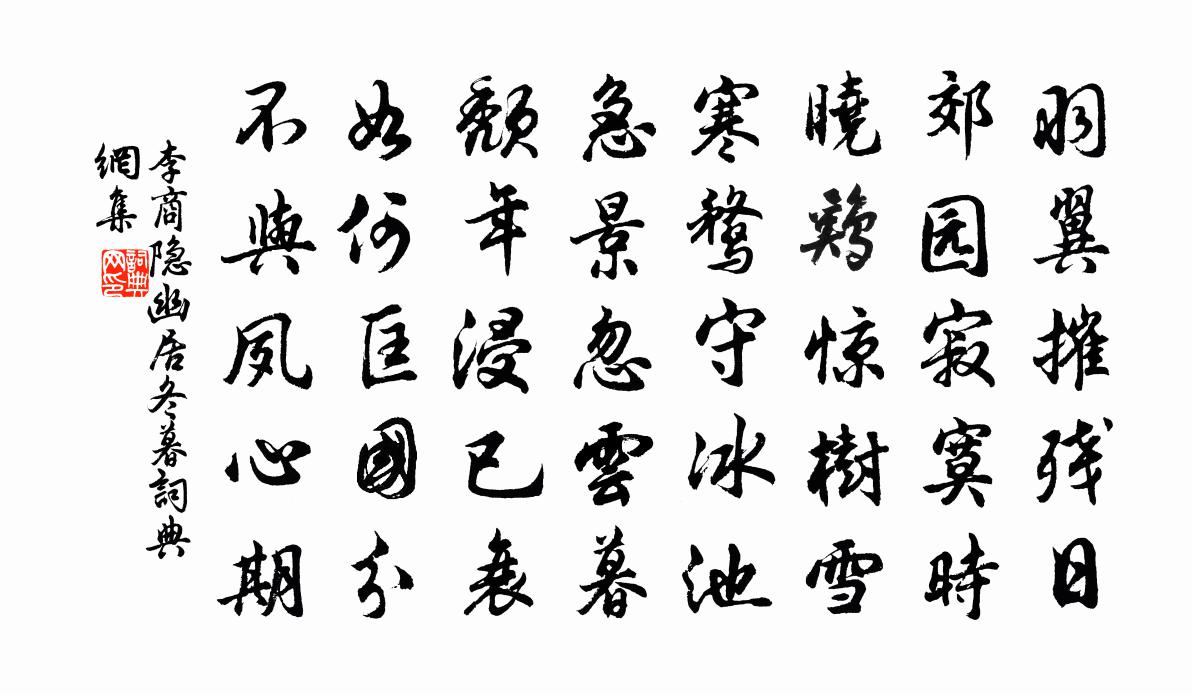 羽翼摧残日
郊园寂寞时
曉鷄惊樹雪
寒鶩守冰池
急景忽雲暮
頹年浸已衰
如何匡國分
不與夙心期
李商隐幽居冬暮詞典
網集
詞典網印